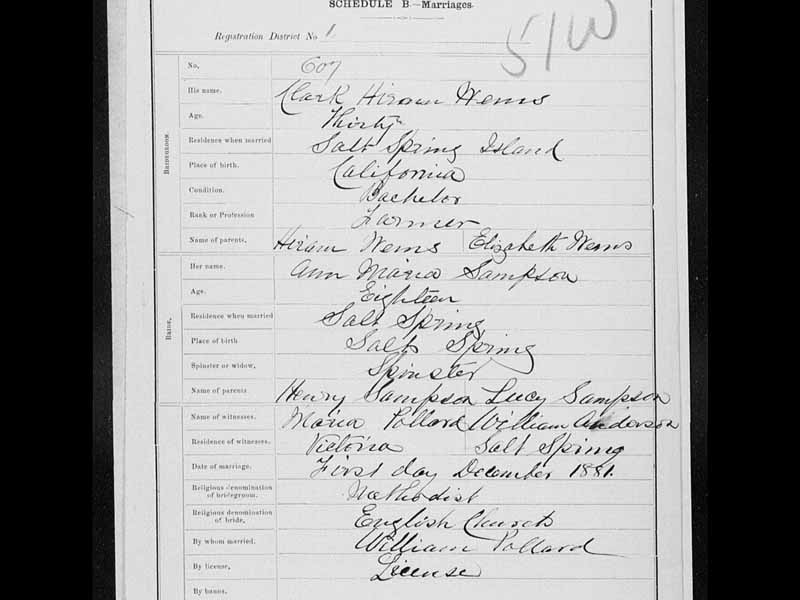 SCHEDULE B.—Marriages.
Registration District No 1
5/W
No. 607
His name. Clark Hiram Wems
Age. Thirty
Residence when married Salt Spring Island
Place of birth. California
Condition. Bachelor
Rank or Profession Farmer
Name of parents, Hiram Wems Elizabeth Wems
Bridegroom.
Her name. Ann Maria Sampson
Age. Eighteen
Residence when married Salt Spring
Place of birth Salt Spring
Spinster or widow, Spinster
Name of parents Henry Sampson Lucy Sampson
Bride,
Name of witnesses. Maria Pollard William Anderson
Residence of witnesses. Victoria Salt Spring
Date of marriage. First day December 1881.
Religious denomination of bridegroom. Methodist
Religious denomination of bride, English Church
By whom married. William Pollard
By license, License
By banns.